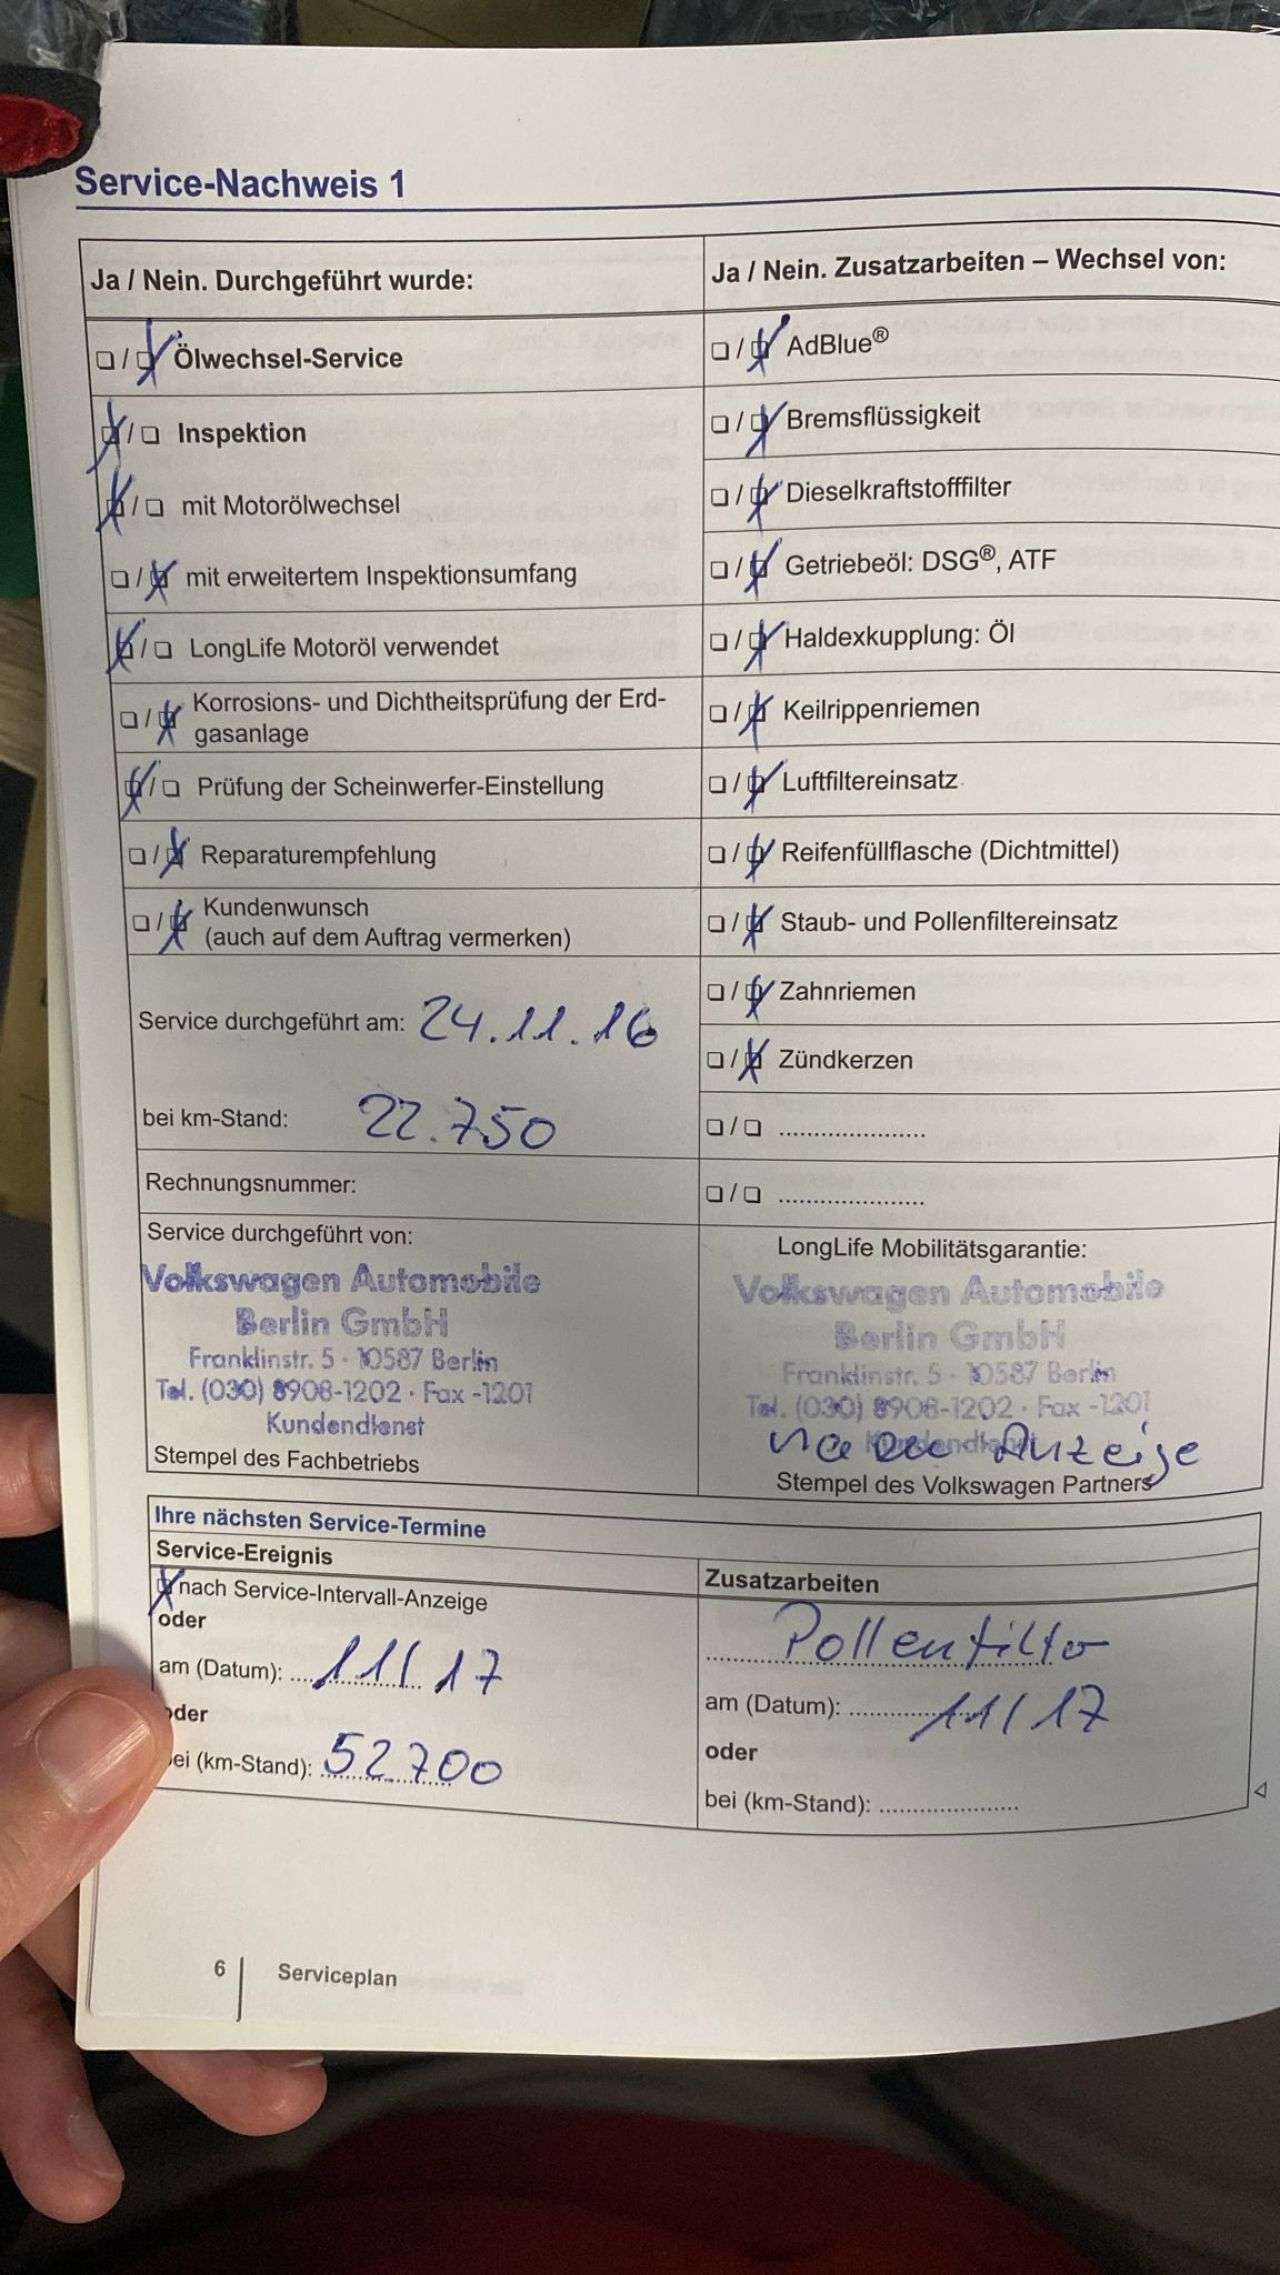 Service-Nachweis 1
Ja / Nein. Durchgeführt wurde:
❏ / ❏ Ölwechsel-Service
❏ / ❏ Inspektion
❏ / ❏ mit Motorölwechsel
❏ / ❏ mit erweitertem Inspektionsumfang
❏ / ❏ LongLife Motoröl verwendet
❏ / ❏ Korrosions- und Dichtheitsprüfung der Erd-
gasanlage
❏ / ❏ Prüfung der Scheinwerfer-Einstellung
❏ / ❏ Reparaturempfehlung
❏ / ❏ Kundenwunsch
(auch auf dem Auftrag vermerken)
Service durchgeführt am: 24.11.16
bei km-Stand: 22.750
Rechnungsnummer:
Service durchgeführt von:
Volkswagen Automobile
Berlin GmbH
Franklinstr. 5 · 10587 Berlin
Tel. (030) 8908-1202 · Fax -1201
Kundendienst
Stempel des Fachbetriebs
Ja / Nein. Zusatzarbeiten – Wechsel von:
❏ / ❏ AdBlue®
❏ / ❏ Bremsflüssigkeit
❏ / ❏ Dieselkraftstofffilter
❏ / ❏ Getriebeöl: DSG®, ATF
❏ / ❏ Haldexkupplung: Öl
❏ / ❏ Keilrippenriemen
❏ / ❏ Luftfiltereinsatz
❏ / ❏ Reifenfüllflasche (Dichtmittel)
❏ / ❏ Staub- und Pollenfiltereinsatz
❏ / ❏ Zahnriemen
❏ / ❏ Zündkerzen
❏ / ❏ .....................
❏ / ❏ .....................
LongLife Mobilitätsgarantie:
Volkswagen Automobile
Berlin GmbH
Franklinstr. 5 · 10587 Berlin
Tel. (030) 8908-1202 · Fax -1201
Kundendienst
Anzeige
Stempel des Volkswagen Partners
Ihre nächsten Service-Termine
Service-Ereignis
❏ nach Service-Intervall-Anzeige
oder
am (Datum): 11/17
oder
bei (km-Stand): 52700
Zusatzarbeiten
Pollenfilter
am (Datum): 11/17
oder
bei (km-Stand): .....................
6 Serviceplan